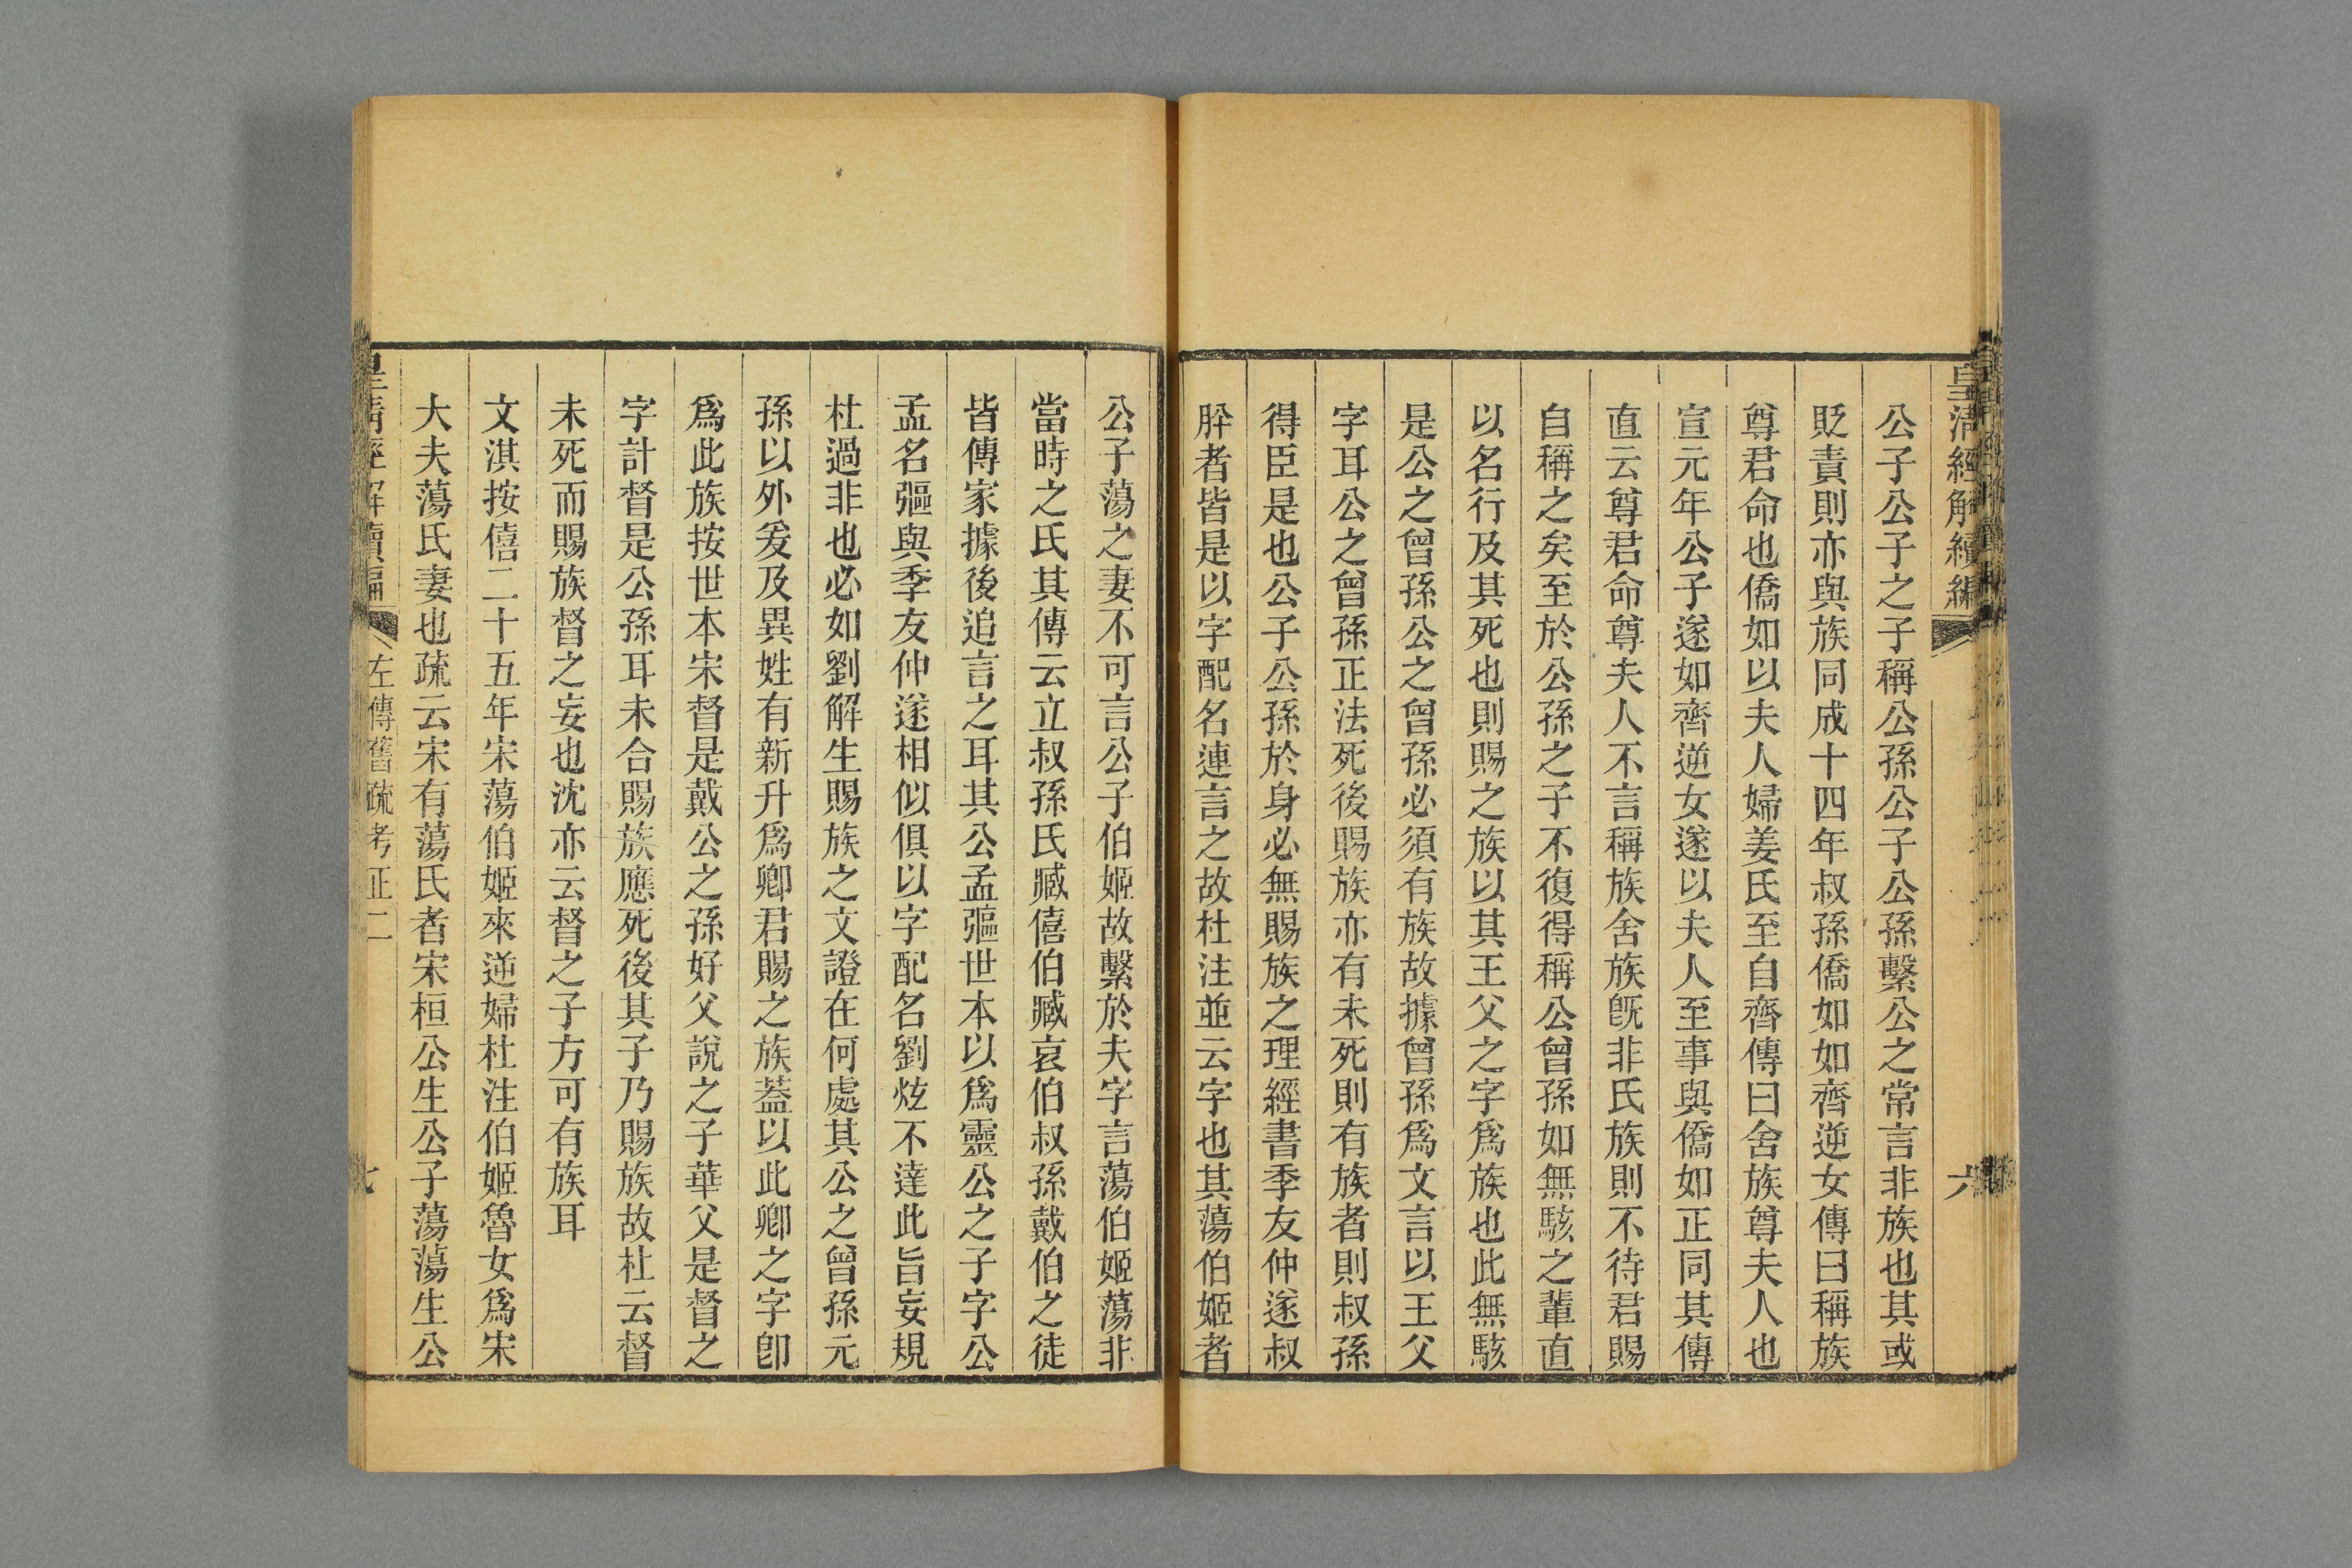 皇清經解續編
六
公子公子之子稱公孫公子公孫繫公之常言非族也其或
貶責則亦與族同成十四年叔孫僑如如齊逆女傳曰稱族
尊君命也僑如以夫人婦姜氏至自齊傳曰舍族尊夫人也
宣元年公子遂如齊逆女遂以夫人至事與僑如正同其傳
直云尊君命尊夫人不言稱族舍族旣非氏族則不待君賜
自稱之矣至於公孫之子不復得稱公曾孫如無駭之輩直
以名行及其死也則賜之族以其王父之字爲族也此無駭
是公之曾孫公之曾孫必須有族故據曾孫爲文言以王父
字耳公之曾孫正法死後賜族亦有未死則有族者則叔孫
得臣是也公子公孫於身必無賜族之理經書季友仲遂叔
肸者皆是以字配名連言之故杜注並云字也其蕩伯姬者
公子蕩之妻不可言公子伯姬故繫於夫字言蕩伯姬蕩非
當時之氏其傳云立叔孫氏臧僖伯臧哀伯叔孫戴伯之徒
皆傳家據後追言之耳其公孟彄世本以爲靈公之子字公
孟名彄與季友仲遂相似俱以字配名劉炫不達此旨妄規
杜過非也必如劉解生賜族之文證在何處其公之曾孫元
孫以外爰及異姓有新升爲卿君賜之族蓋以此卿之字卽
爲此族按世本宋督是戴公之孫好父說之子華父是督之
字計督是公孫耳未合賜族應死後其子乃賜族故杜云督
未死而賜族督之妄也沈亦云督之子方可有族耳
文淇按僖二十五年宋蕩伯姬來逆婦杜注伯姬魯女爲宋
大夫蕩氏妻也疏云宋有蕩氏者宋桓公生公子蕩蕩生公
皇清經解續編
左傳舊疏考正二
七